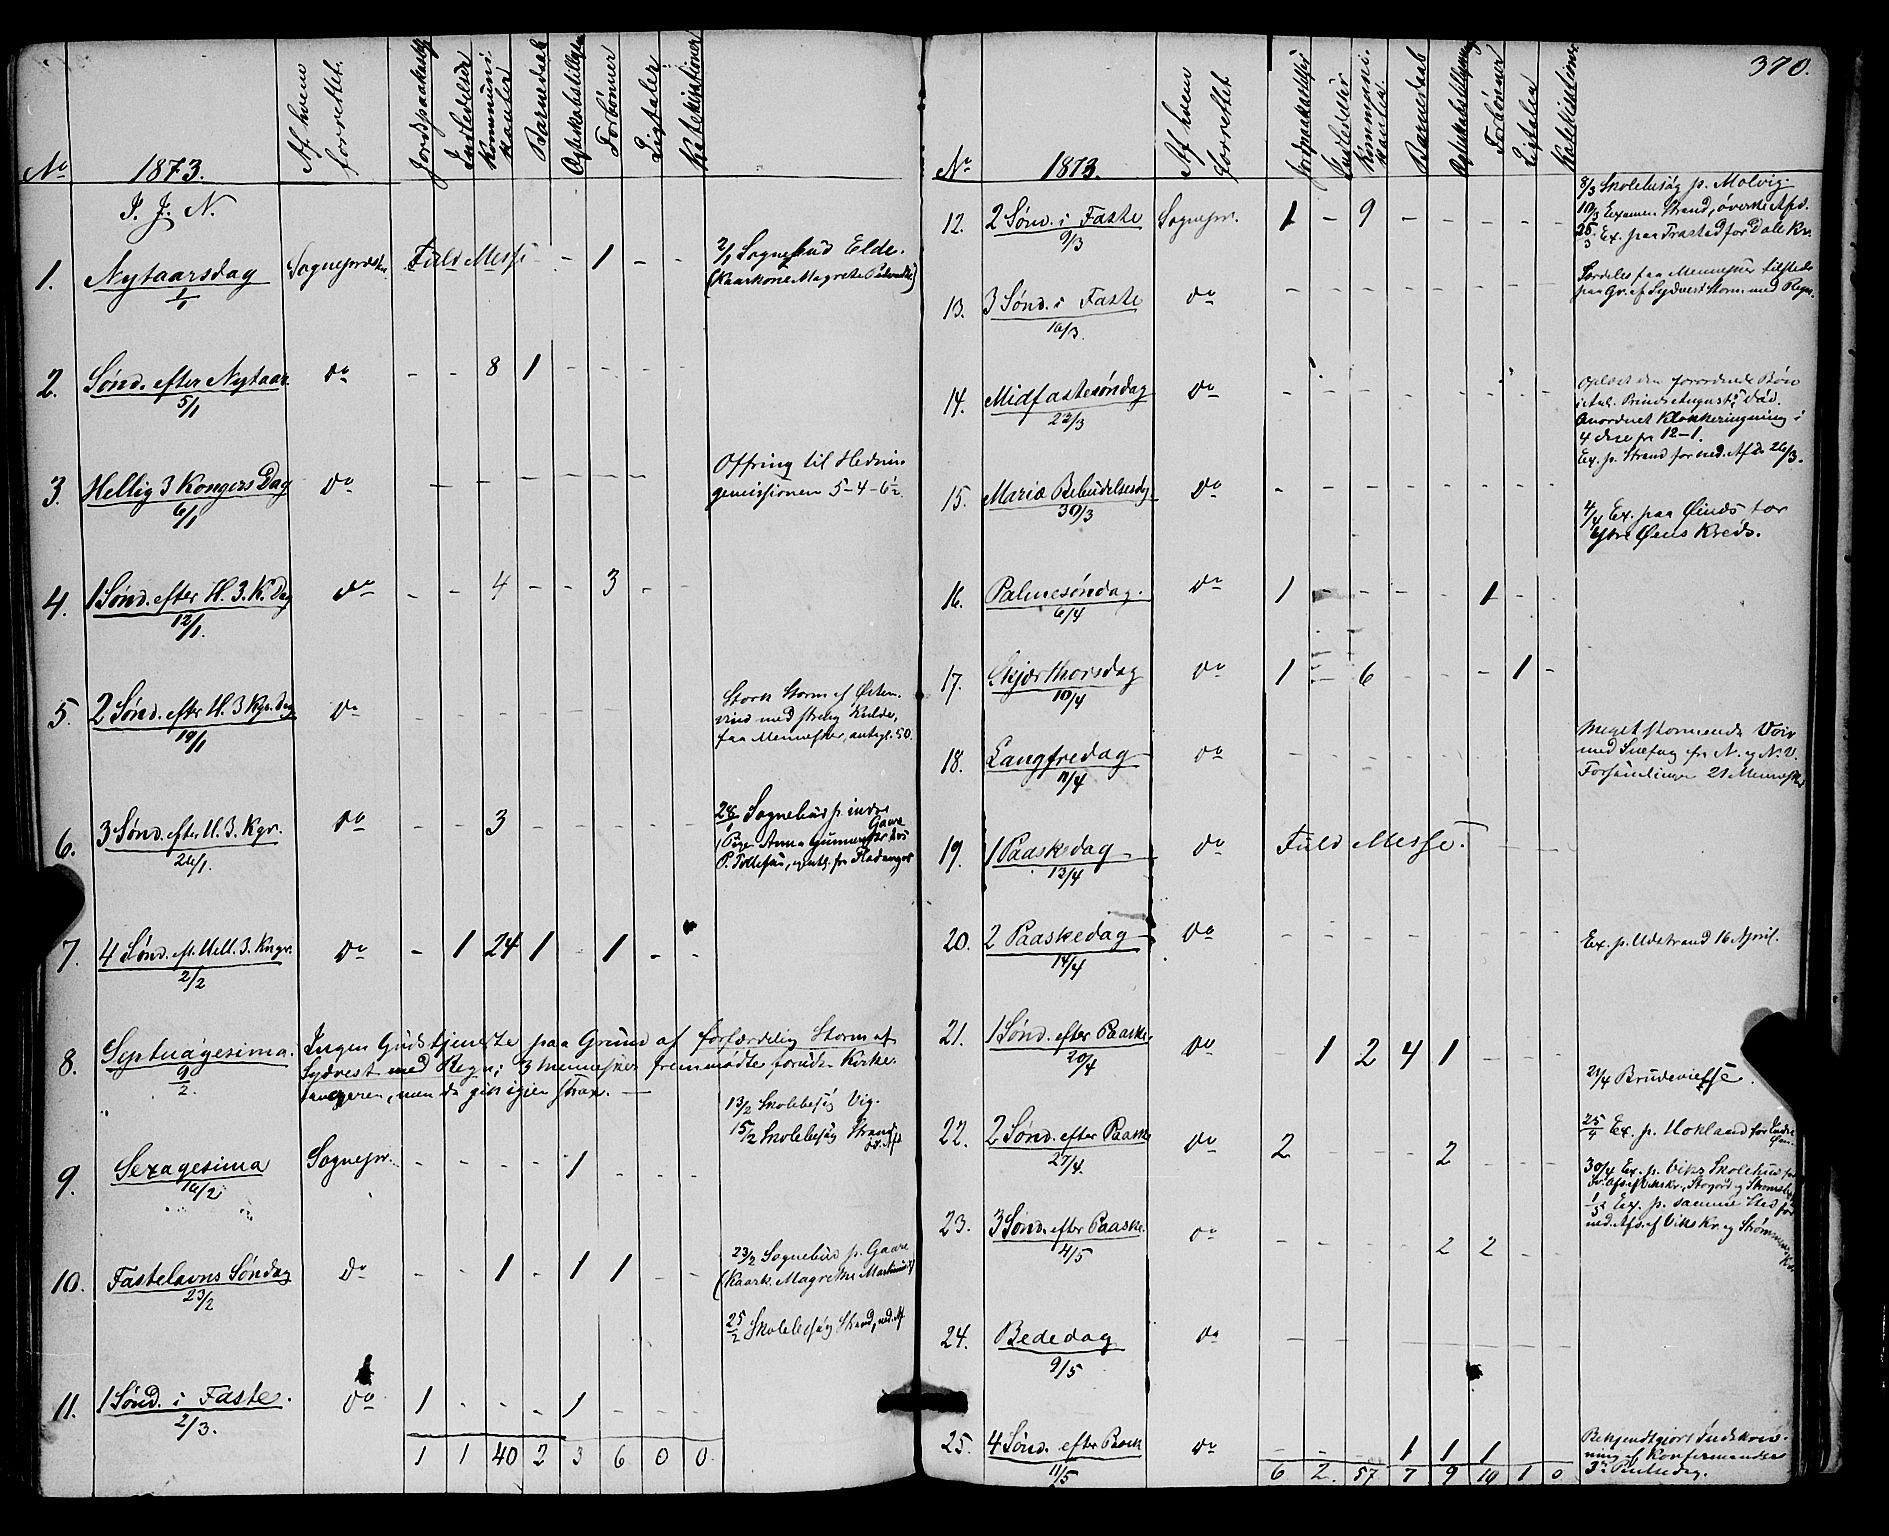 No 1873. Af hvem forrettet. Jordspaakastelse Indledelse Kommunikanter Barnedaab Ægteskabstillysn. Forbønner Ligtaler Katekisationer
I. J. N.
1. Nytaarsdag Sognepræsten Fuld Messe - - 1 - - 2/1 Sognebud Elde.
1/1 (Kaarkone Magrete
2. Sønd. efter Nytaar do - - 8 1 - - - -
5/1
3. Hellig 3 Kongers Dag do - - - - - - Offring til Hednin-
6/1 gemissionen 5-4-6½.
4. 1 Sønd. efter H. 3. K. Dag do - - 4 - - 3 - -
12/1.
5. 2 Sønd. efter H. 3 Kgr. Dag do - - - - - - - - Stærk Storm af Østen-
19/1 vind med streng Kulde,
faa Mennesker, antagl. 50.
6. 3 Sønd. efter H. 3. Kgr. do - - 3 - - - - - 28/1 Sognebud p. indre
26/1. Gaare
(Pige Anna Gunner
P. Tollefsen,
7. 4 Sønd. ef. Hell. 3. Kngr. do - 1 24 1 - 1 - -
2/2
8. Septuagesima. Ingen Gudstjeneste paa Grund af forfærdelig Storm af
9/2. Sydvest med Regn; 3 Mennesker fremmødte foruden Kirke-
sangeren, men de gik igjen strax. —
13/2 Skolebesøg Vig.
15/2 Skolebesøg Strand
øv. Afd
9. Sexagesima Sognepr. - - - - 1 - - -
16/2
10. Fastelavns Søndag do - - 1 - 1 1 - - 23/2 Sognebud p. Gaare
23/2 (Kaark. Magrethe
25/2 Skolebesøg Strand, ned. Af.
11. 1 Sønd. i Faste. do 1 - - - 1 - - -
2/3.
1 1 40 2 3 6 0 0.
370.
No 1873. Af hvem forrettet Jordpaakastelse Indledelse Kommunikanter. Barnedaab Ægteskabstillysning Forbønner Ligtaler Katekisationer
8/3 Skolebesøg p. Molvig.
12. 2 Sønd. i Faste Sognepr. 1 - 9 - - - - - 10/3 Examen Strand, øverste Afd.
9/3 25/3 Ex. paa Trastad for Dale Kr.
13. 3 Sønd. i Faste do - - - - - - - - Særdeles faa Mennesker tilstede
16/3. paa Gr. af Sydvest Storm med Regn.
14. Midfastesøndag do - - - - - - - - Oplæst den forordnede Bøn
23/3 i Anl. Prinds Augusts Død.
Anordnet Klokkeringning i
4 Uger fr 12-1.
Ex. p. Strand for ned. Afd. 26/3.
15. Mariæ Bebudelsesdg. do - - - - - - - -
30/3
4/4 Ex. paa Øinds for
Ytre Øens Kreds.
16. Palmesøndag. do 1 - - - - 1 - -
6/4
17. Skjærthorsdag do 1 - 6 - - - 1 -
10/4
18. Langfredag do - - - - - - - - Meget stormende Veir
11/4 med Snefog fr N. og N.V.
Forsamlingen 21 Mennesker
19. 1 Paaskedag do Fuld Messe. - - -
13/4
20. 2 Paaskedag do - - - - - - - - Ex. p. Udstrand 16 April.
14/4
21. 1 Sønd. efter Paaske. do - 1 2 4 1 - - -
20/4
21/4 Brudevielse.
22. 2 Sønd. efter Paaske do 2 - - - 2 - - - 25/4 Ex. p. Hokland for Indre
27/4. Øen.
30/4 Ex. p. Viks Skolehus for
1/5 Ex. p. samme Sted for
ned. Afd. af Viks Kr. og Strømmen
Kr.
23. 3 Sønd. efter Paaske. do - - - - 2 2 - -
4/5
24. Bededag do - - - - - - - -
9/5
25. 4 Sønd. efter Paask do - - - 1 1 1 Bekjendtgjort Indskriv-
11/5 ning af Konfirmander
6 2. 57 7 9 10 1 0 3die Pintsedag.